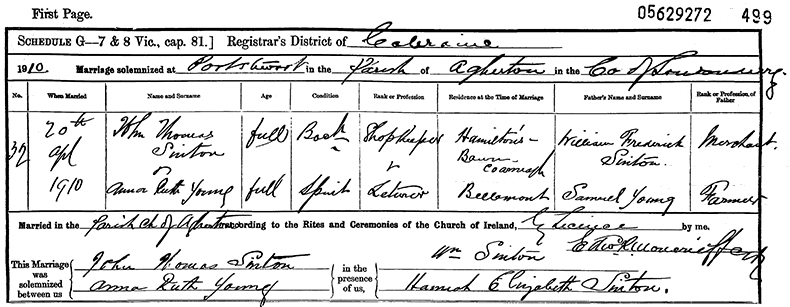 First Page.
05629272 499
SCHEDULE G—7 & 8 Vic., cap. 81.] Registrar's District of Coleraine
1910. Marriage solemnized at Portstewart in the Parish of Agherton in the Co of Londonderry.
No. When Married Name and Surname Age Condition Rank or Profession Residence at the Time of Marriage Father's Name and Surname Rank or Profession of Father
32 20th Apl 1910 John Thomas Sinton full Bach Shopkeeper Hamilton's-Bawn Co Armagh William Frederick Sinton. Merchant.
Anna Ruth Young full Spinst Bellemont Samuel Young Farmer
Married in the Parish Ch of Agherton according to the Rites and Ceremonies of the Church of Ireland, by Licence by me.
This Marriage was solemnized between us
John Thomas Sinton
Anna Ruth Young
in the presence of us,
Wm Sinton
Hannah Elizabeth Sinton.